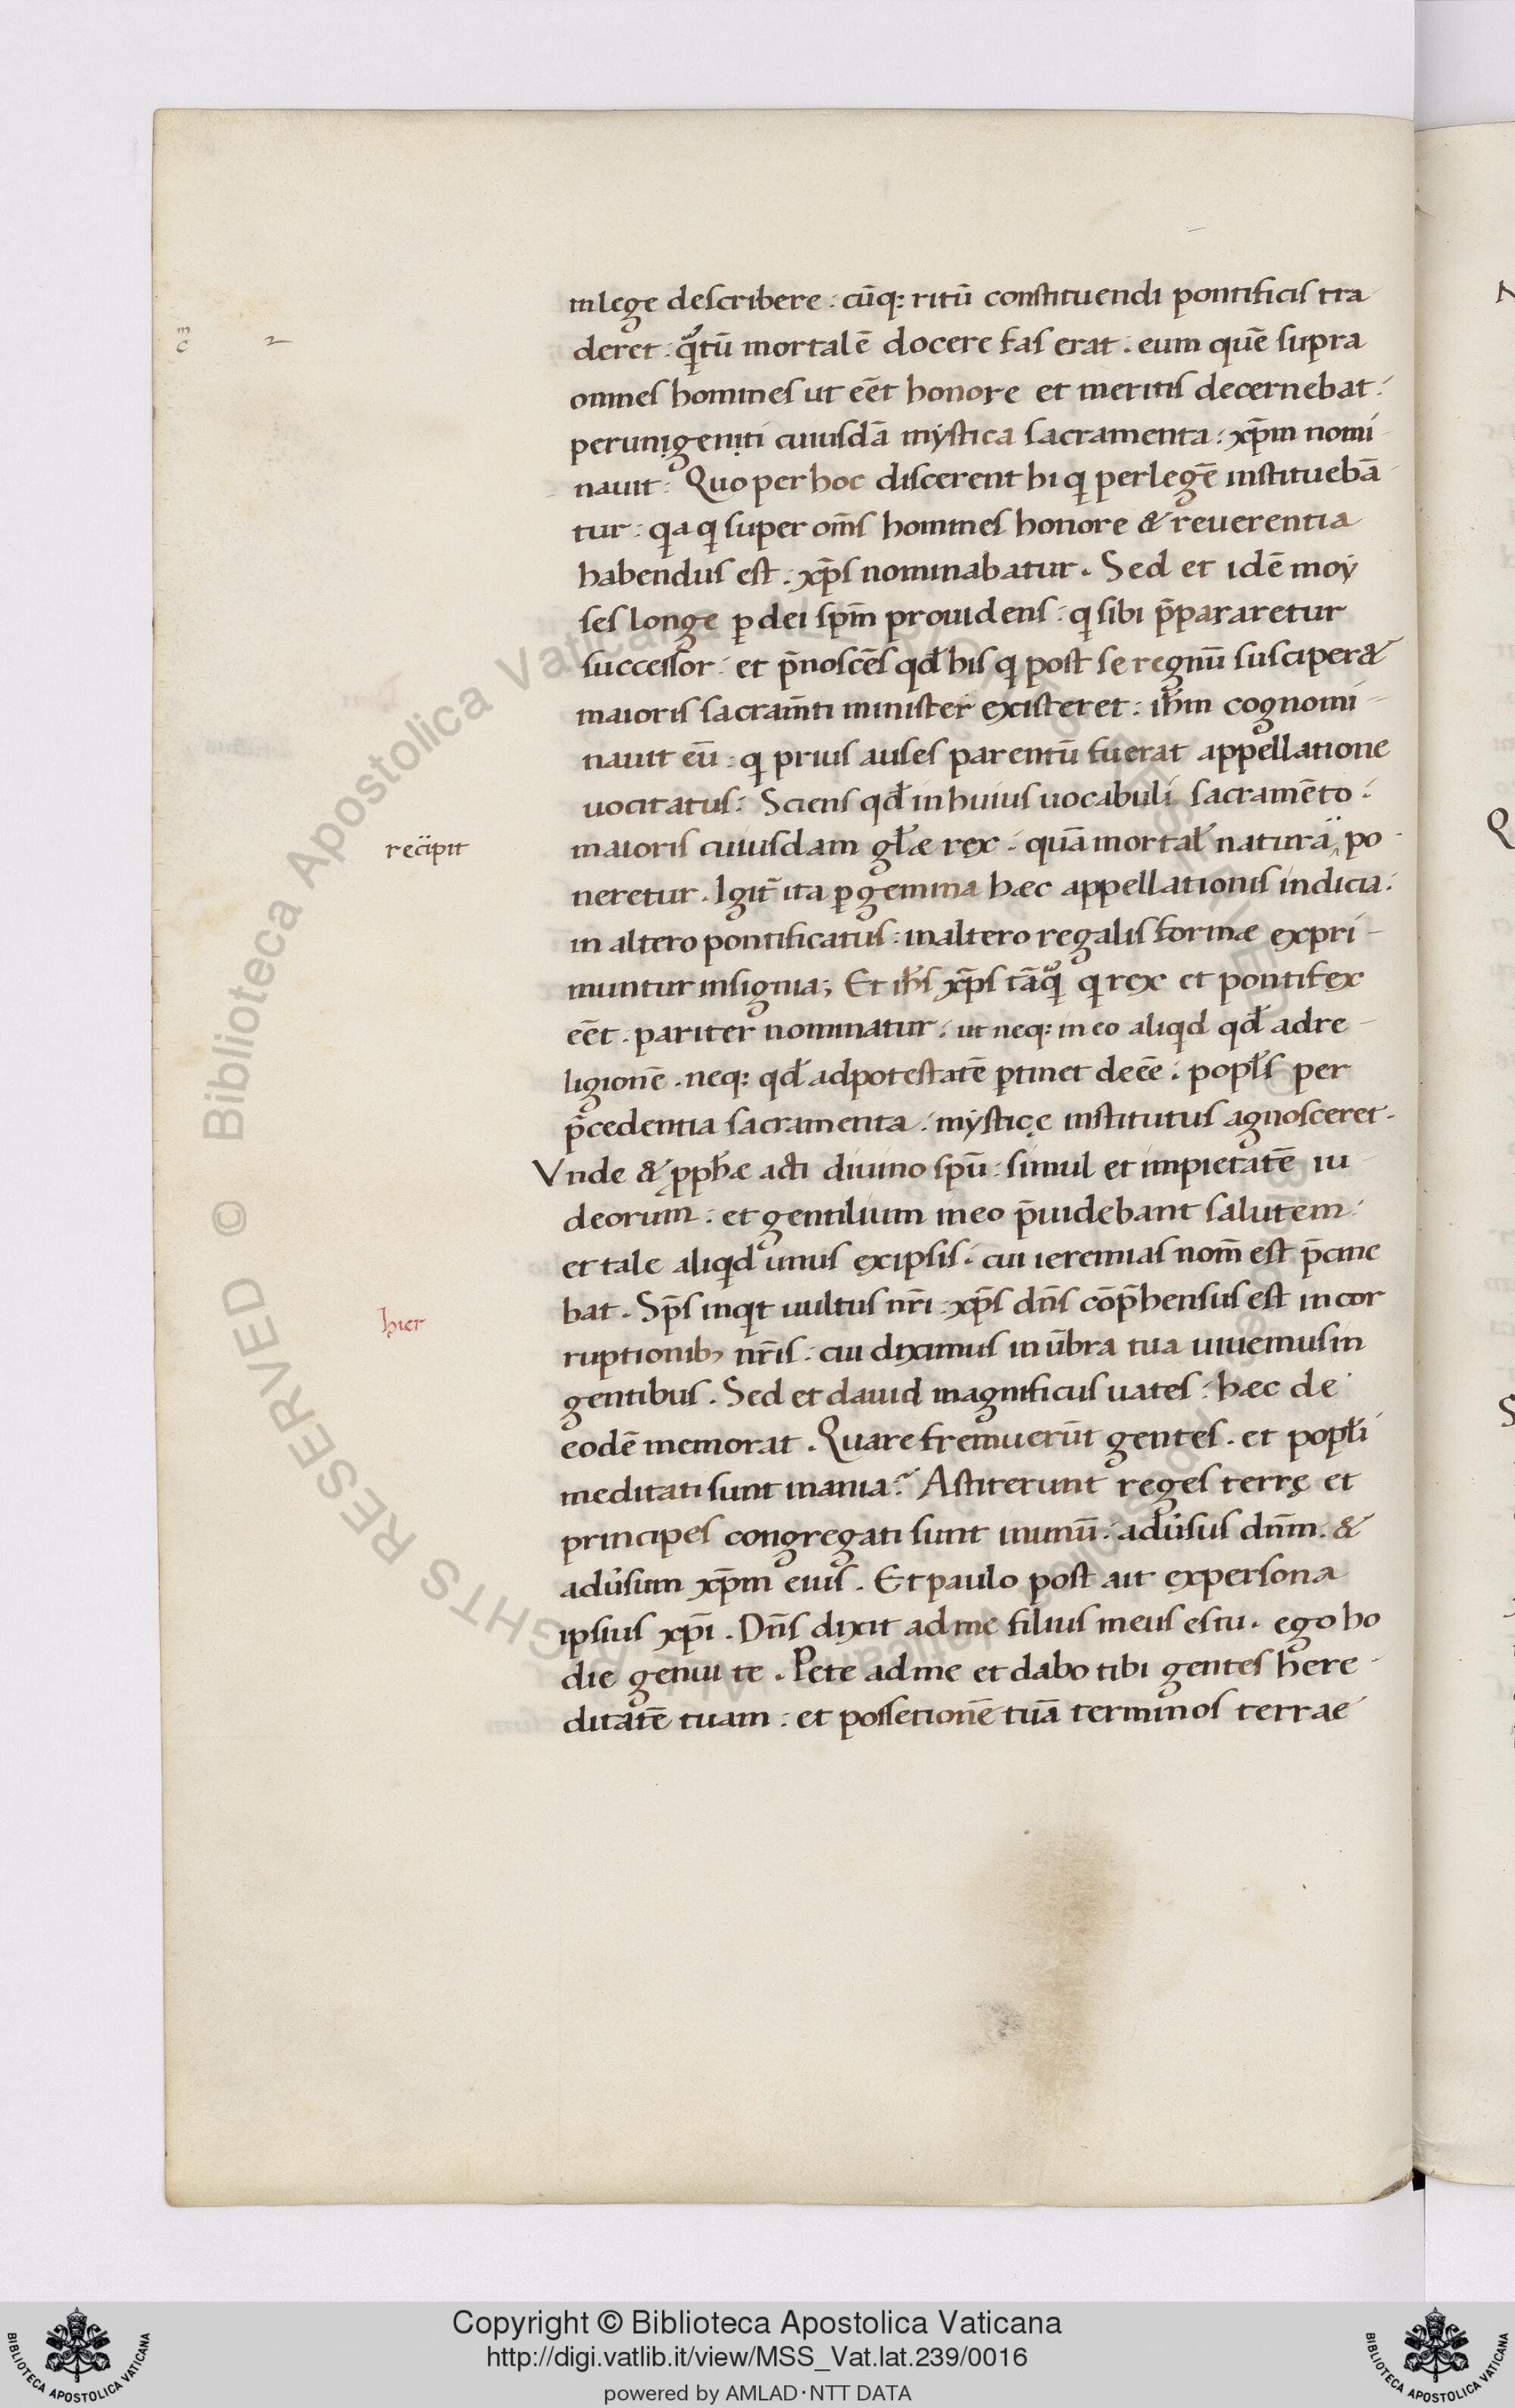 inlege describere : cūq; ritū constituendi pontificis tra
deret : qͣtū mortalē docere fas erat . eum quē supra
omnes homines ut eēt honore et meritis decernebat :
perunigeniti cuiusdā mystica sacramenta : xp̄m nomi
nauit : Quo per hoc discerent hi qi perlegē instituebā
tur : qia qi super om̄s homines honore & reuerentia
habendus est . xp̄s nominabatur . Sed et idē moy
ses longe ꝑ dei sp̄m prouidens : qi sibi p̄pararetur
successor : et p̄noscēs qđ his qi post se regnū susciper&
maioris sacram̄ti minister existeret : ih̄m cognomi
nauit eū : qi prius auses parentū fuerat appellatione
uocitatus : Sciens qđ in huius uocabuli sacramēto :
recipit
maioris cuiusdam gl̄æ rex . quā mortal̄ naturā po
neretur . Igit̄ ita ꝑ gemina hæc appellationis indicia :
in altero pontificatus : in altero regalis formæ expri
muntur insignia ; Et ih̄s xp̄s tāqͣ qi rex et pontifex
eēt . pariter nominatur . ut neq; in eo aliqid qđ adre
ligionē . neq; qđ adpotestatē ꝑtinet deēe . popl̄s per
p̄cedentia sacramenta . mysticę institutus agnosceret .
Vnde & ꝓph̄æ acti diuino sp̄u : simul et impietatē iu
deorum : et gentilium in eo p̄uidebant salutem :
et tale aliqid unus ex ipsis . cui ieremias nom̄ est p̄cine
hier
bat . Sp̄s inqit uultus nr̄i : xp̄s dn̄s cōp̄hensus est in cor
ruptionibꝫ nr̄is : cui diximus in ūbra tua uiuemus in
gentibus . Sed et dauid magnificus uates : hæc de
eodē memorat . Quare fremuerūt gentes . et popl̄i
meditati sunt inania ? Astiterunt reges terrę et
principes congregati sunt inunū : adu̓sus dn̄m . &
adu̓sum xp̄m eius . Et paulo post ait expersona
ipsius xp̄i . Dn̄s dixit ad me filius meus es tu . ego ho
die genui te . Pete ad me et dabo tibi gentes here
ditatē tuam : et possetionē tuā terminos terrae
© Biblioteca Apostolica Vaticana
Copyright © Biblioteca Apostolica Vaticana
http://digi.vatlib.it/view/MSS_Vat.lat.239/0016
powered by AMLAD·NTT DATA
BIBLIOTECA APOSTOLICA VATICANA
BIBLIOTECA APOSTOLICA VATICANA